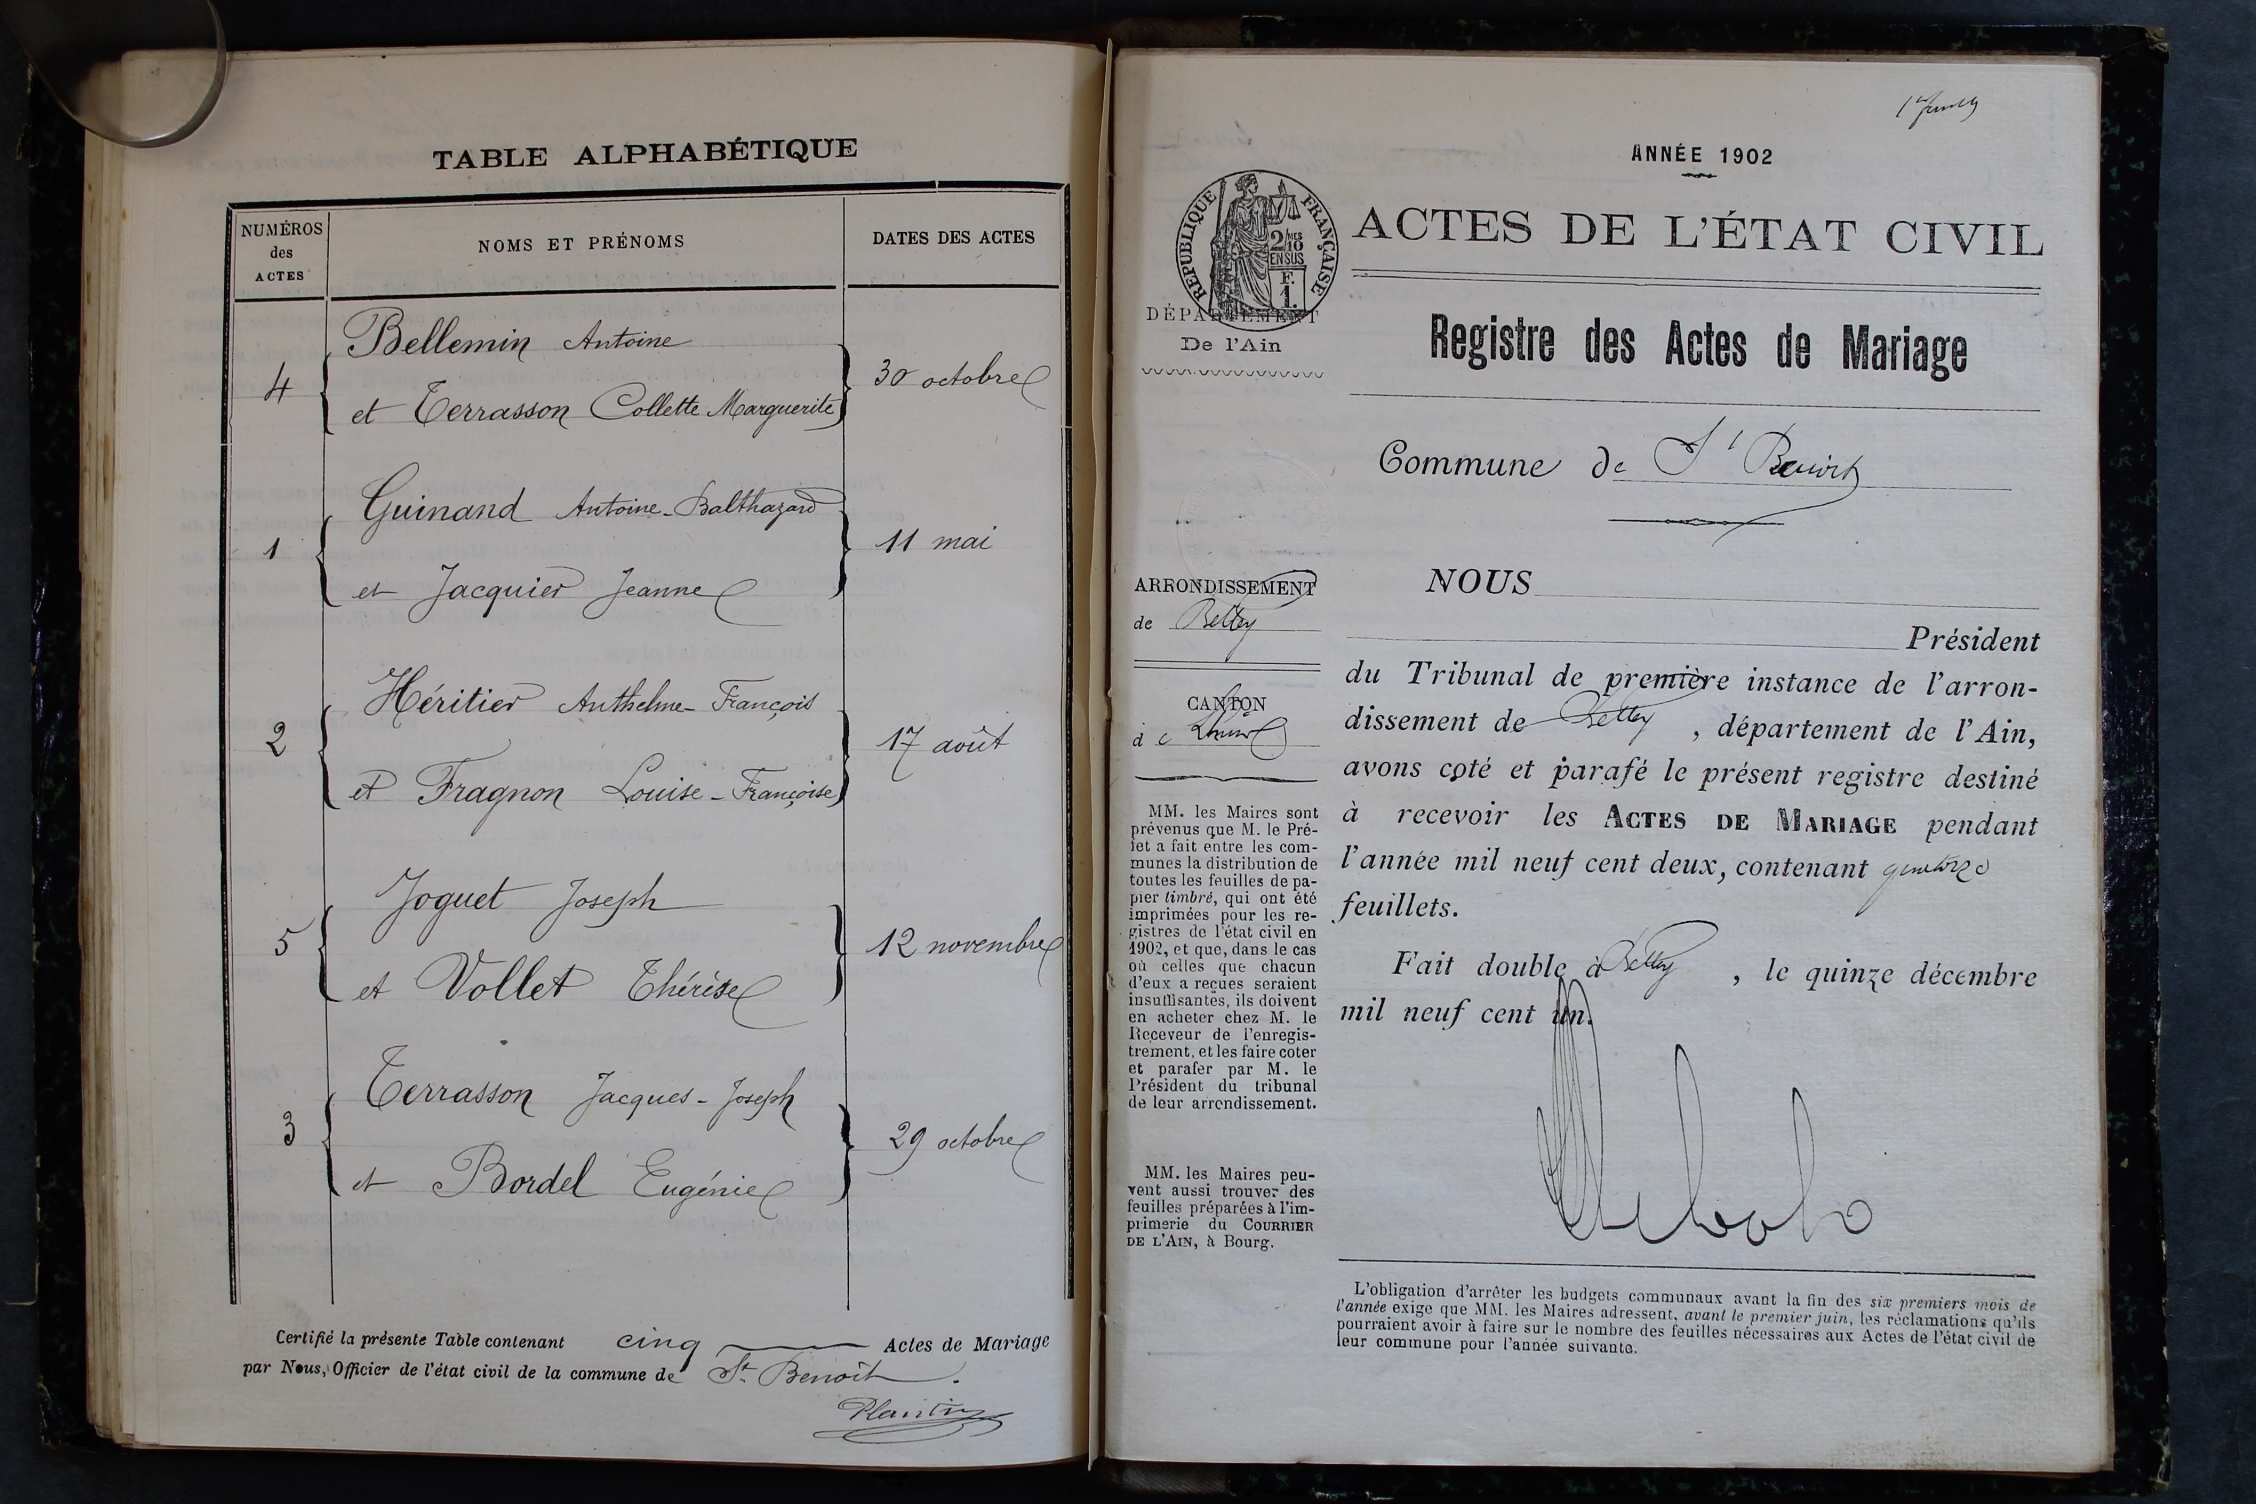 TABLE ALPHABÉTIQUE
NUMÉROS
des
ACTES
NOMS ET PRÉNOMS
DATES DES ACTES
Bellemin Antoine
4
30 octobre
et Terrasson Collette Marguerite
Guinand Antoine-Balthazard
1
11 mai
et Jacquier Jeanne
Héritier Anthelme-François
2
17 août
et Fragnon Louise-Françoise
Joguet Joseph
5
12 novembre
et Vollet Thérèse
Terrasson Jacques-Joseph
3
29 octobre
et Bordel Eugénie
Certifié la présente Table contenant cinq Actes de Mariage
par Nous, Officier de l'état civil de la commune de St Benoît.
Plantin
ANNÉE 1902
RÉPUBLIQUE FRANÇAISE
2/10
MES
EN SUS
F.
1.
ACTES DE L'ÉTAT CIVIL
DÉPARTEMENT
De l'Ain
Registre des Actes de Mariage
Commune de St Benoit
ARRONDISSEMENT
de Belley
CANTON
de
MM. les Maires sont
prévenus que M. le Pré-
fet a fait entre les com-
munes la distribution de
toutes les feuilles de pa-
pier timbré, qui ont été
imprimées pour les re-
gistres de l'état civil en
1902, et que, dans le cas
où celles que chacun
d'eux a reçues seraient
insuffisantes, ils doivent
en acheter chez M. le
Receveur de l'enregis-
trement, et les faire coter
et parafer par M. le
Président du tribunal
de leur arrondissement.
MM. les Maires peu-
vent aussi trouver des
feuilles préparées à l'im-
primerie du COURRIER
DE L'AIN, à Bourg.
NOUS
Président
du Tribunal de première instance de l'arron-
dissement de Belley, département de l'Ain,
avons coté et parafé le présent registre destiné
à recevoir les ACTES DE MARIAGE pendant
l'année mil neuf cent deux, contenant
feuillets.
Fait double à Belley, le quinze décembre
mil neuf cent un.
L'obligation d'arrêter les budgets communaux avant la fin des six premiers mois de
l'année exige que MM. les Maires adressent, avant le premier juin, les réclamations qu'ils
pourraient avoir à faire sur le nombre des feuilles nécessaires aux Actes de l'état civil de
leur commune pour l'année suivante.